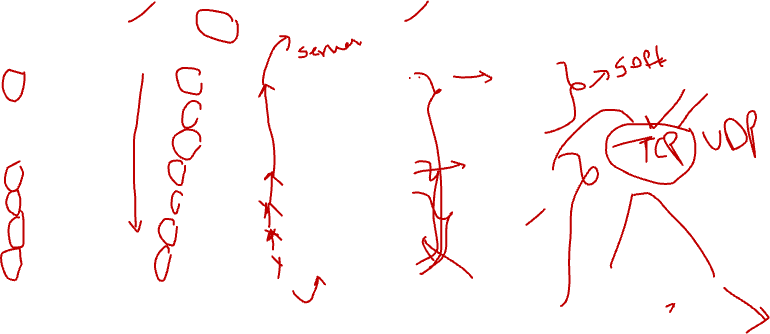 server
soft
TCP UDP